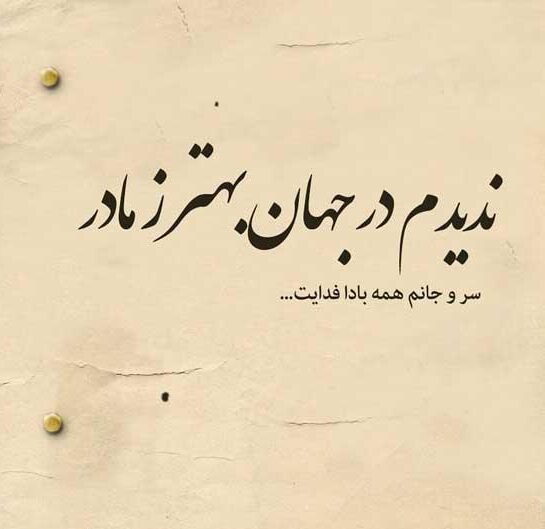 ندیدم در جهان بهتر ز مادر
سر و جانم همه بادا فدایت...